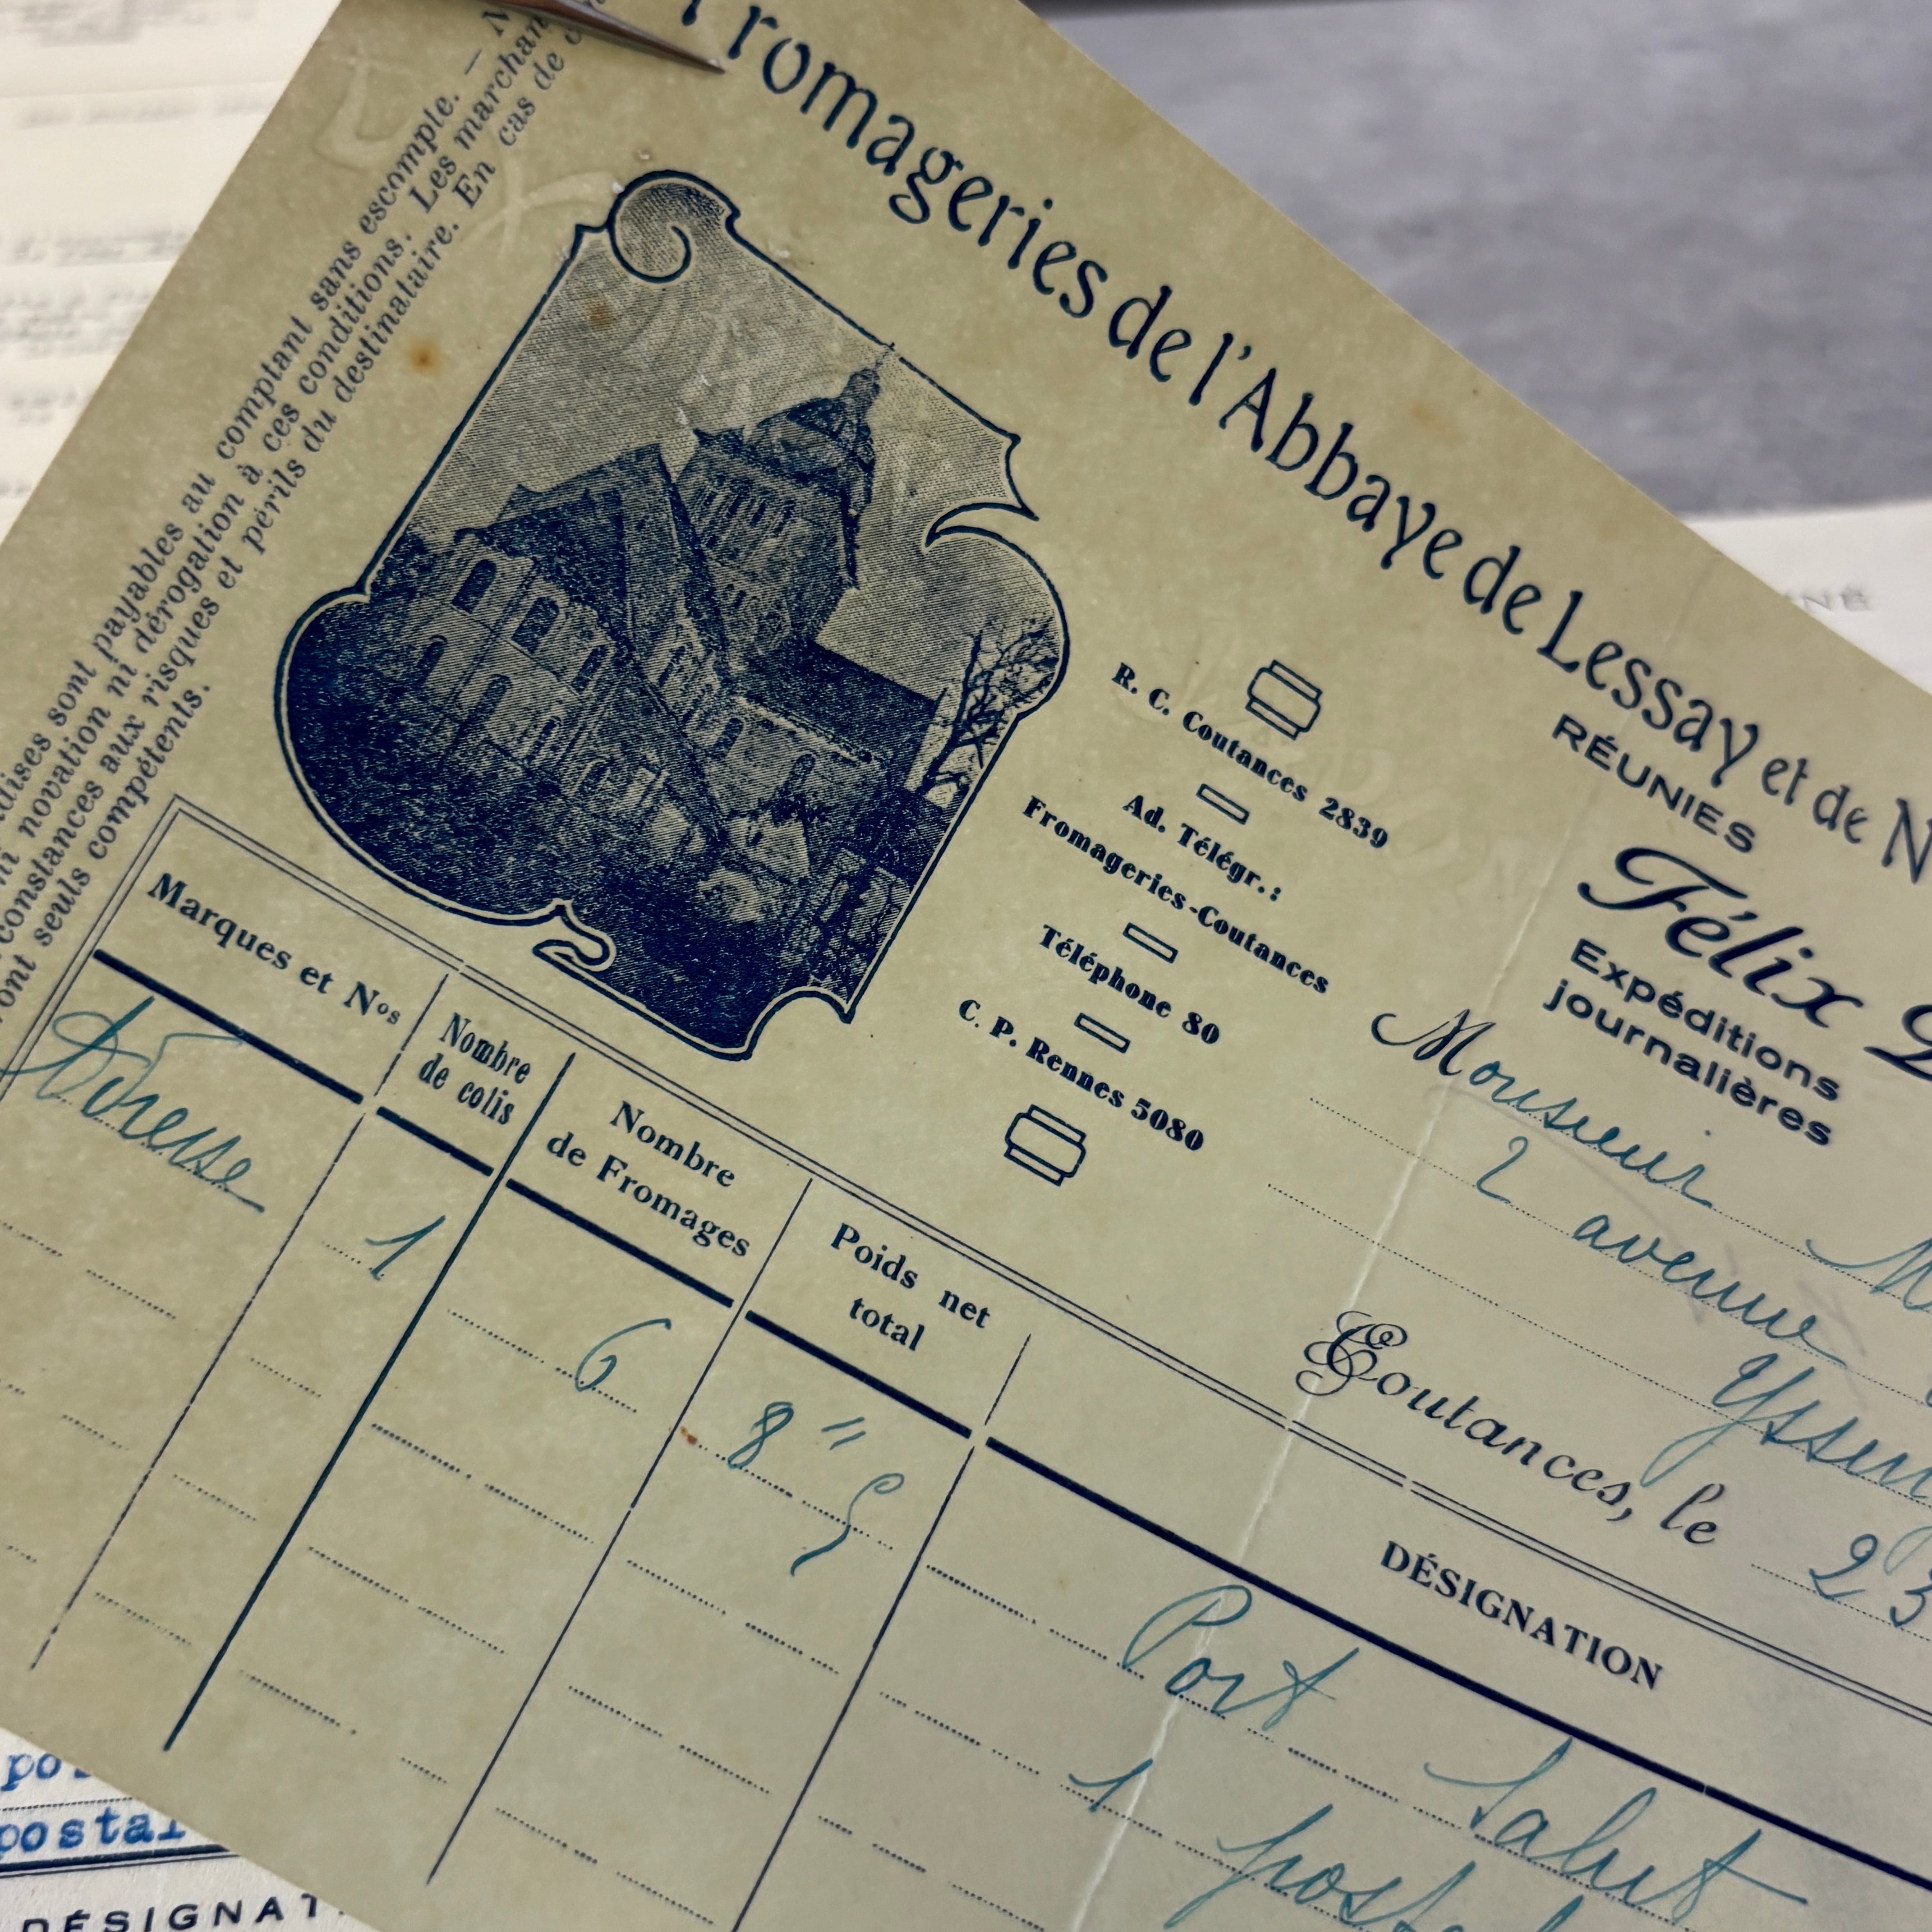 Fromageries de l'Abbaye de Lessay et de N
RÉUNIES
Félix
Expéditions
journalières
dises sont payables au comptant sans escompte. — N
ni novation ni dérogation à ces conditions. Les marchan
constances aux risques et périls du destinataire. En cas de c
ont seuls compétents.
R. C. Coutances 2839
Ad. Télégr.:
Fromageries-Coutances
Téléphone 80
C. P. Rennes 5080
Monsieur M
2 avenue
Yssin
Coutances, le 23
Marques et Nos
Nombre
de colis
Nombre
de Fromages
Poids net
total
DÉSIGNATION
Adresse 1 6 8 " Port Salut
1 post
po
postal
DÉSIGNAT
NÉ